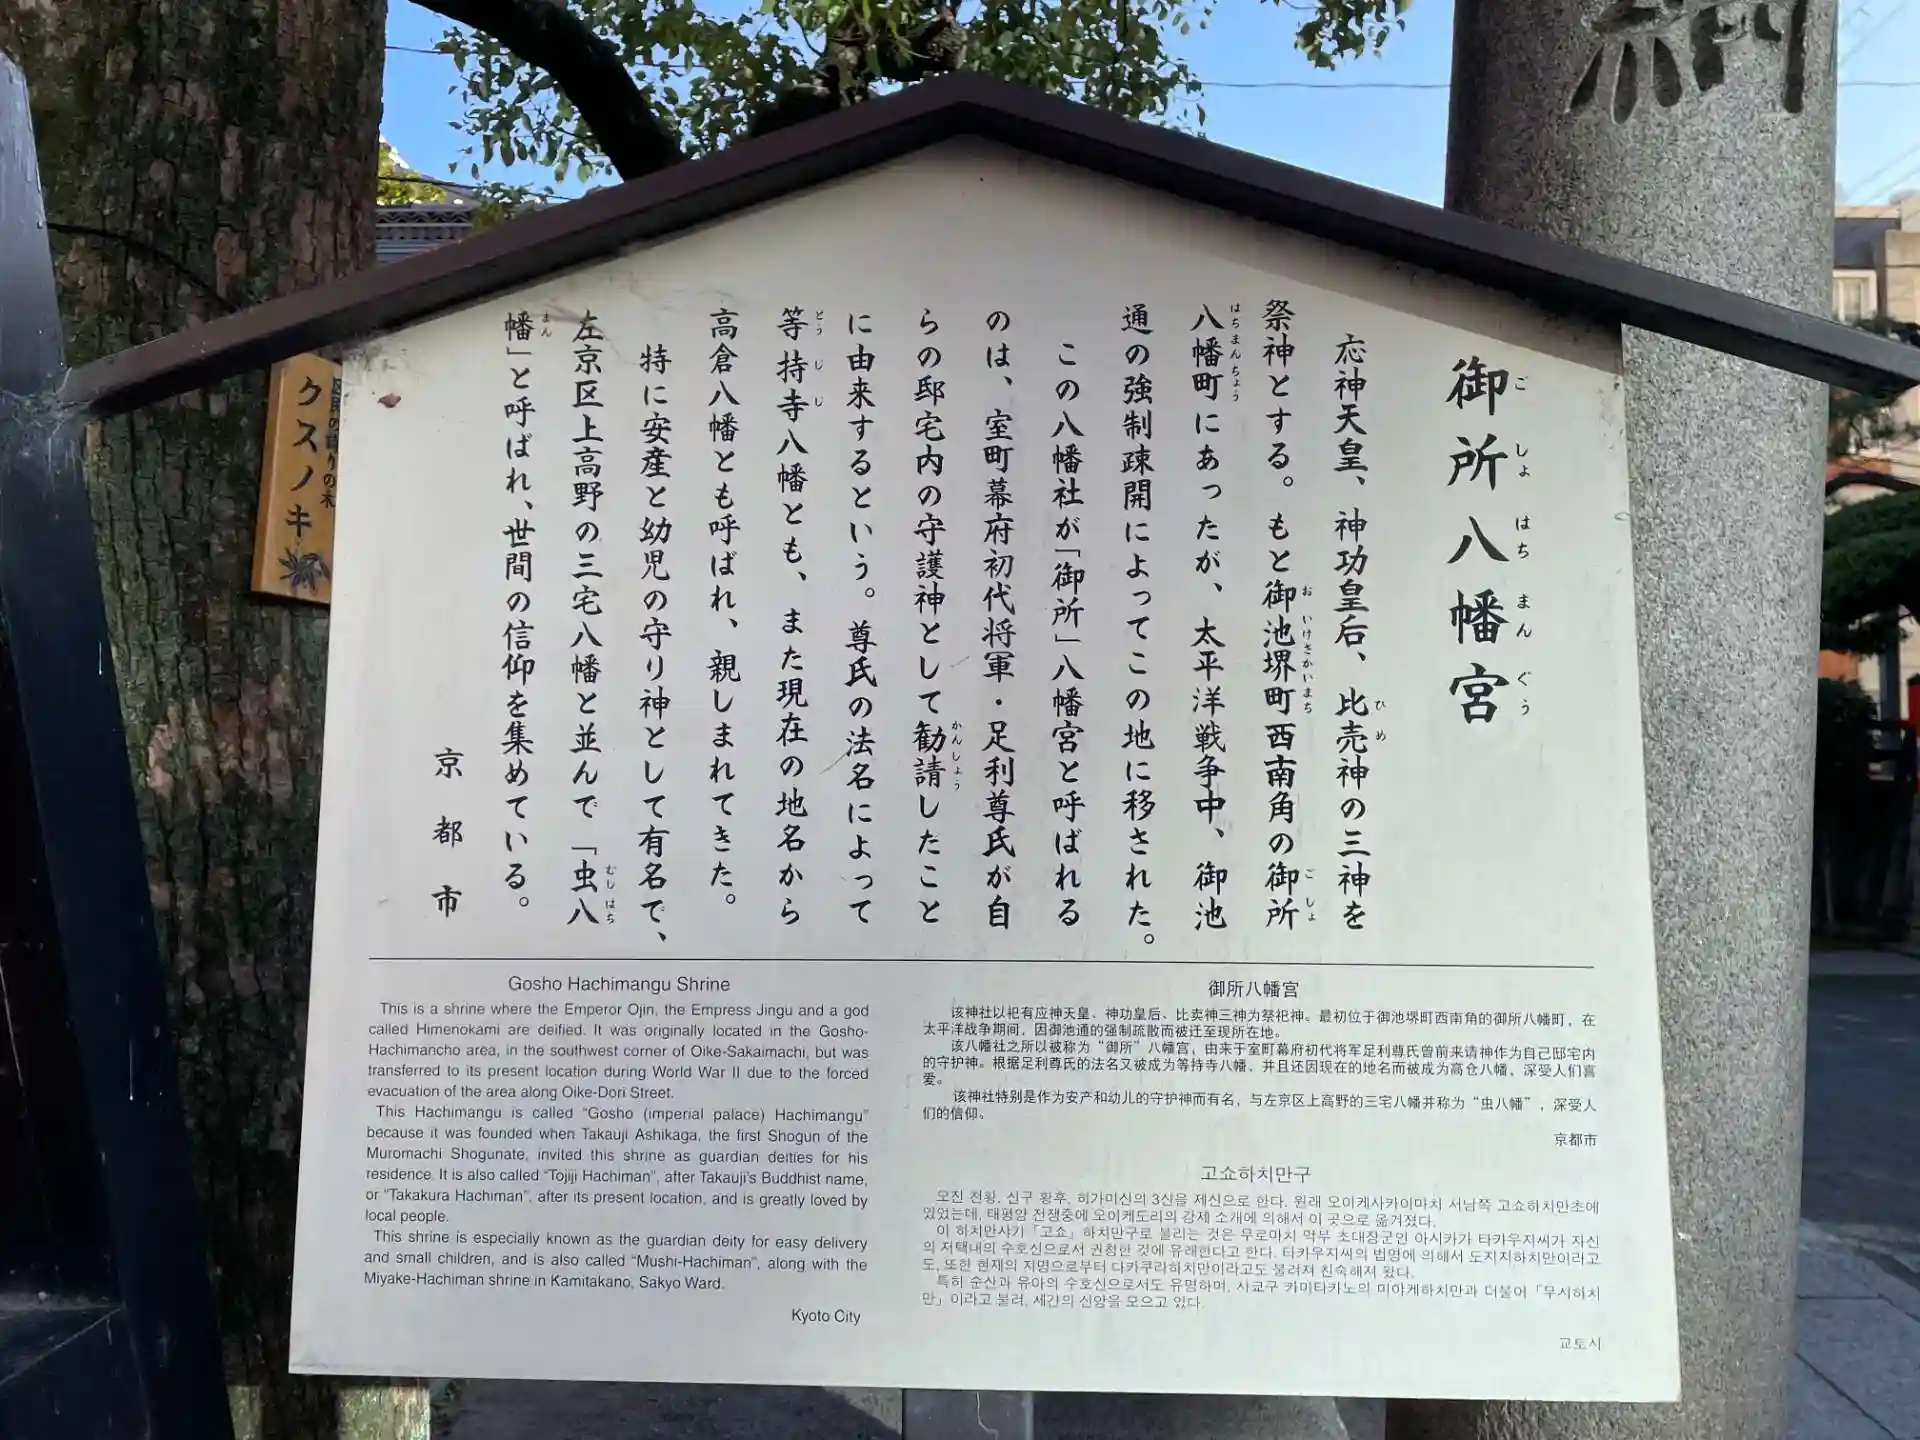 御所八幡宮
ごしょはちまんぐう
応神天皇、神功皇后、比売神の三神を
祭神とする。もと御池堺町西南角の御所
八幡町にあったが、太平洋戦争中、御池
通の強制疎開によってこの地に移された。
この八幡社が「御所」八幡宮と呼ばれる
のは、室町幕府初代将軍・足利尊氏が自
らの邸宅内の守護神として勧請したこと
に由来するという。尊氏の法名によって
等持寺八幡とも、また現在の地名から
高倉八幡とも呼ばれ、親しまれてきた。
特に安産と幼児の守り神として有名で、
左京区上高野の三宅八幡と並んで「虫八
幡」と呼ばれ、世間の信仰を集めている。
京都市
Gosho Hachimangu Shrine
This is a shrine where the Emperor Ojin, the Empress Jingu and a god
called Himenokami are deified. It was originally located in the Gosho-
Hachimancho area, in the southwest corner of Oike-Sakaimachi, but was
transferred to its present location during World War II due to the forced
evacuation of the area along Oike-Dori Street.
This Hachimangu is called "Gosho (imperial palace) Hachimangu"
because it was founded when Takauji Ashikaga, the first Shogun of the
Muromachi Shogunate, invited this shrine as guardian deities for his
residence. It is also called "Tojiji Hachiman", after Takauji's Buddhist name,
or "Takakura Hachiman", after its present location, and is greatly loved by
local people.
This shrine is especially known as the guardian deity for easy delivery
and small children, and is also called "Mushi-Hachiman", along with the
Miyake-Hachiman shrine in Kamitakano, Sakyo Ward.
Kyoto City
御所八幡宮
该神社以祀有应神天皇、神功皇后、比卖神三神为祭祀神。最初位于御池堺町西南角的御所八幡町，在
太平洋战争期间，因御池通的强制疏散而被迁至现所在地。
该八幡社之所以被称为“御所”八幡宫，由来于室町幕府初代将军足利尊氏曾前来请神作为自己邸宅内
的守护神。根据足利尊氏的法名又被成为等持寺八幡，并且还因现在的地名而被成为高仓八幡，深受人们喜
爱。
该神社特别是作为安产和幼儿的守护神而有名，与左京区上高野的三宅八幡并称为“虫八幡”，深受人
们的信仰。
京都市
고쇼하치만구
오진 천황, 신구 황후, 히가미신의 3신을 제신으로 한다. 원래 오이케사카이마치 서남쪽 고쇼하치만초에
있었는데, 태평양 전쟁중에 오이케도리의 강제 소개에 의해서 이 곳으로 옮겨졌다.
이 하치만사가「고쇼」하치만구로 불리는 것은 무로마치 막부 초대장군인 아시카가 타카우지씨가 자신
의 저택내의 수호신으로서 권청한 것에 유래한다고 한다. 타카우지씨의 법명에 의해서 도지지하치만이라고
도, 또한 현재의 지명으로부터 다카쿠라하치만이라고도 불려져 친숙해져 왔다.
특히 순산과 유아의 수호신으로서도 유명하며, 사쿄구 카미타카노의 미야케하치만과 더불어「무시하치
만」이라고 불려, 세간의 신앙을 모으고 있다.
교토시
クスノキ